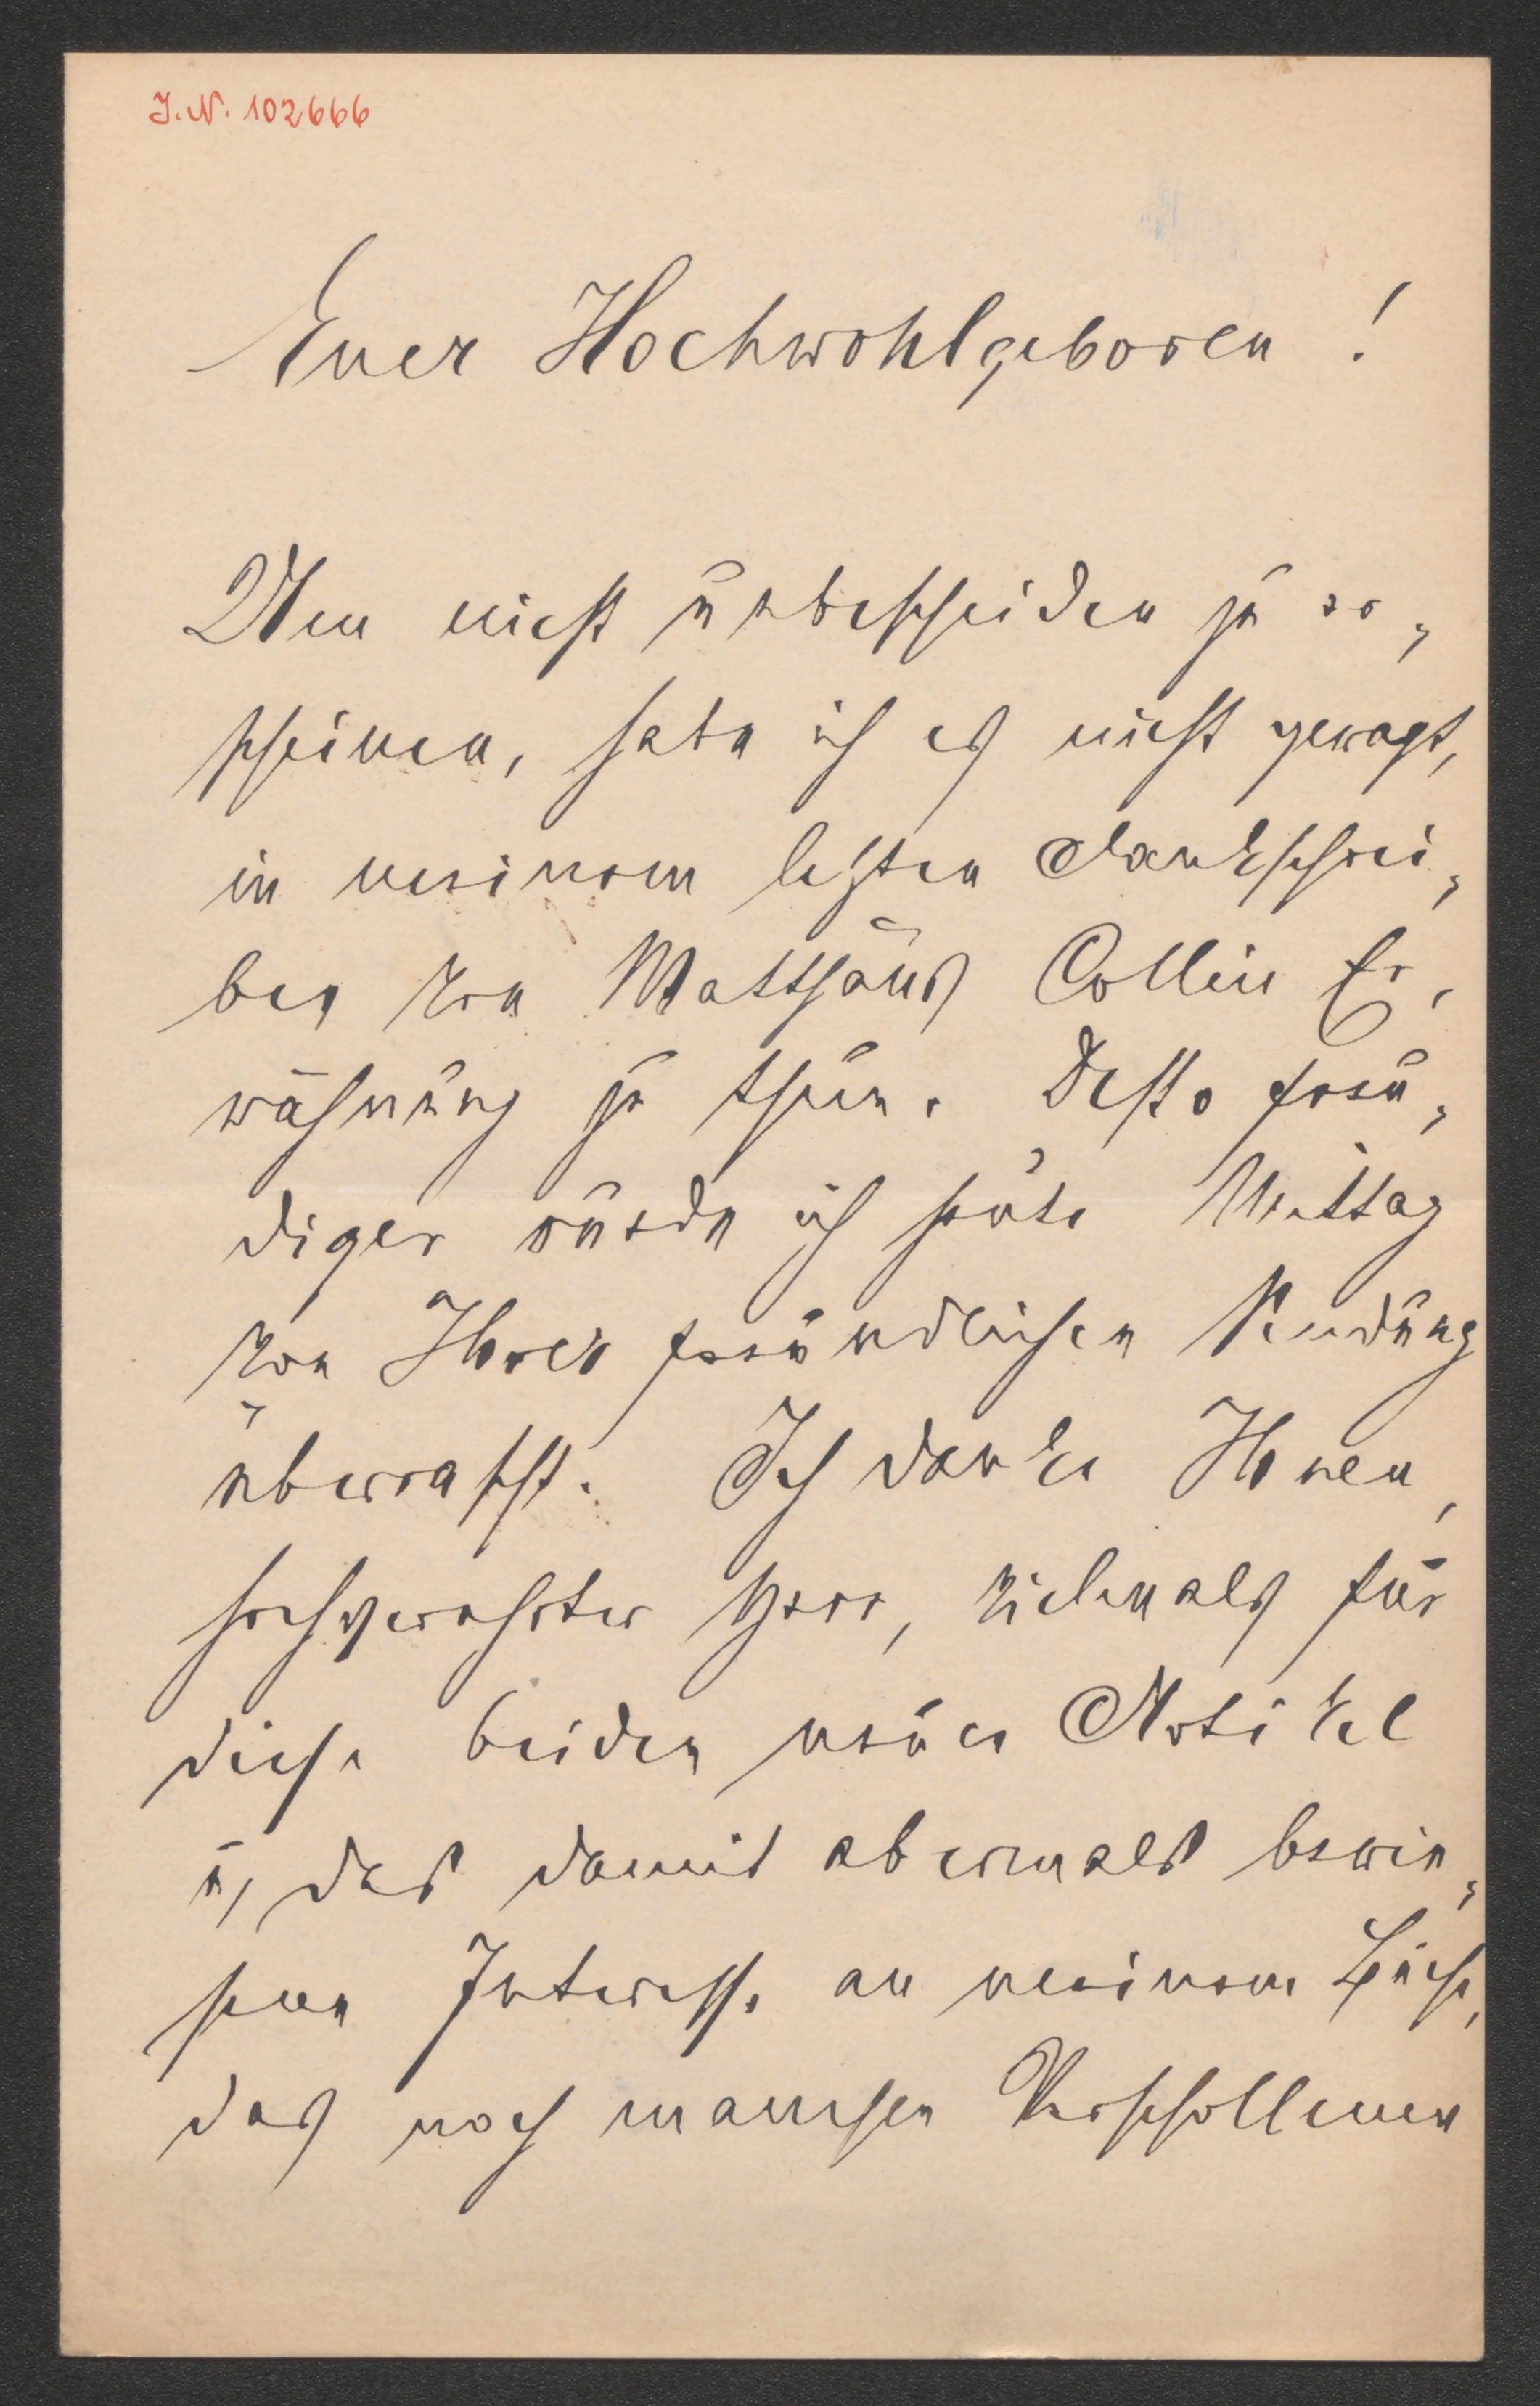 J.N. 102666
Euer Hochwohlgeboren!
Um nicht unbescheiden zu er-
scheinen, habe ich es nicht gewagt,
in meinem letzten Dankschrei-
ben von Matthäus Collin Er-
wähnung zu thun. Desto freu-
diger wurde ich heute Mittag
von Ihrer freundlichen Sendung
überrascht. Ich danke Ihnen,
hochverehrter Herr, vielmals für
diese beiden neuen Artikel
u, das damit abermals bewie-
sene Interesse an meinem Buche,
das noch manchen Verschollenen